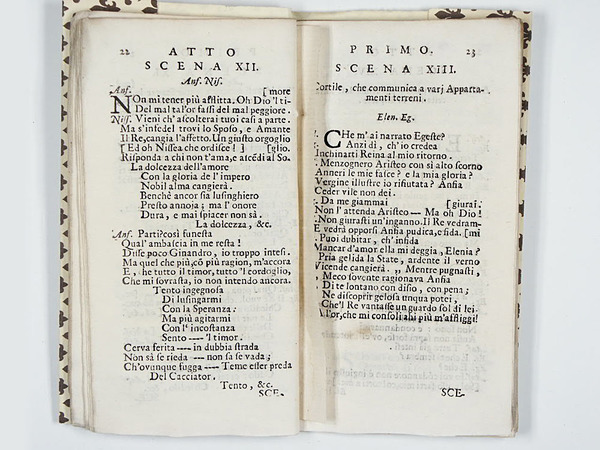 22 ATTO
SCENA XII.
Anf. Nis.
Anf. [more
NOn mi tener più afflitta. Oh Dio 'l ti-
Del mal tal'or fassi del mal peggiore.
Nis. Vieni ch'ascolterai tuoi casi a parte.
Ma s'infedel trovi lo Sposo, e Amante
Il Re, cangia l'affetto. Un giusto orgoglio
[ Ed oh Nissea che ordisce! ] [glio.
Risponda a chi non t'ama, e ascēdi al So.
La dolcezza dell'amore
Con la gloria de l'impero
Nobil alma cangierà.
Benchè ancor sia lusinghiero
Presto annoja; ma l'onore
Dura, e mai spiacer non sà.
La dolcezza, &c.
Anf. Parti? così funesta
Qual' ambascia in me resta!
Disse poco Ginandro, io troppo intesi.
Ma quel che più, cō più ragion, m'accora
E, che tutto il timor, tutto 'l cordoglio,
Che mi sovrasta, io non intendo ancora.
Tento ingegnosa
Di lusingarmi
Con la Speranza:
Ma più agitarmi
Con l'incostanza
Sento ---- 'l timor.
Cerva ferita ---- in dubbia strada
Non sà se rieda ---- non sa se vada;
Ch'ovunque fugga ---- Teme esser preda
Del Cacciator.
Tento, &c.
SCE-
PRIMO. 23
SCENA XIII.
Cortile, che communica a varj Apparta-
menti terreni.
Elen. Eg.
CHe m'ai narrato Egeste?
Anzi dì, ch'io credea
Inchinarti Reina al mio ritorno.
Menzognero Aristeo con sì alto scorno
Anneri le mie fasce? e la mia gloria?
Vergine illustre io rifiutata? Anfia
Ceder vile non dei.
Da me giammai [giurai.
Non l'attenda Aristeo -- Ma oh Dio!
Non giurasti un'inganno. Il Re vedram-
E vedrà opporsi Anfia pudica, e fida. [mi
Puoi dubitar, ch'infida
Mancar d'amor ella mi deggia, Elenia?
Pria gelida la State, ardente il verno
Vicende cangierà. ,, Mentre pugnasti,
Meco sovente ragionava Anfia
Di te lontano con disio, con pena;
Ne discoprir gelosa unqua potei,
Che'l Re vantasse un guardo sol di lei.
Al'or, che mi consoli ahi più m'affliggi!
SCE-